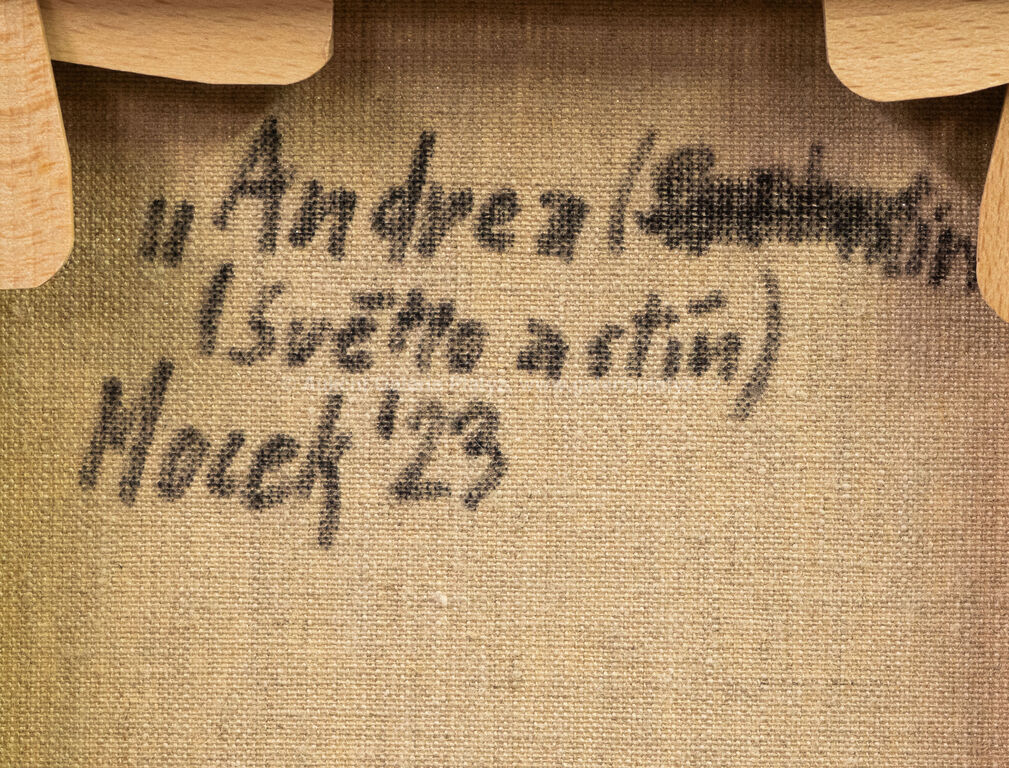 „Andrea (
(Světlo a stín)
Mocek '23